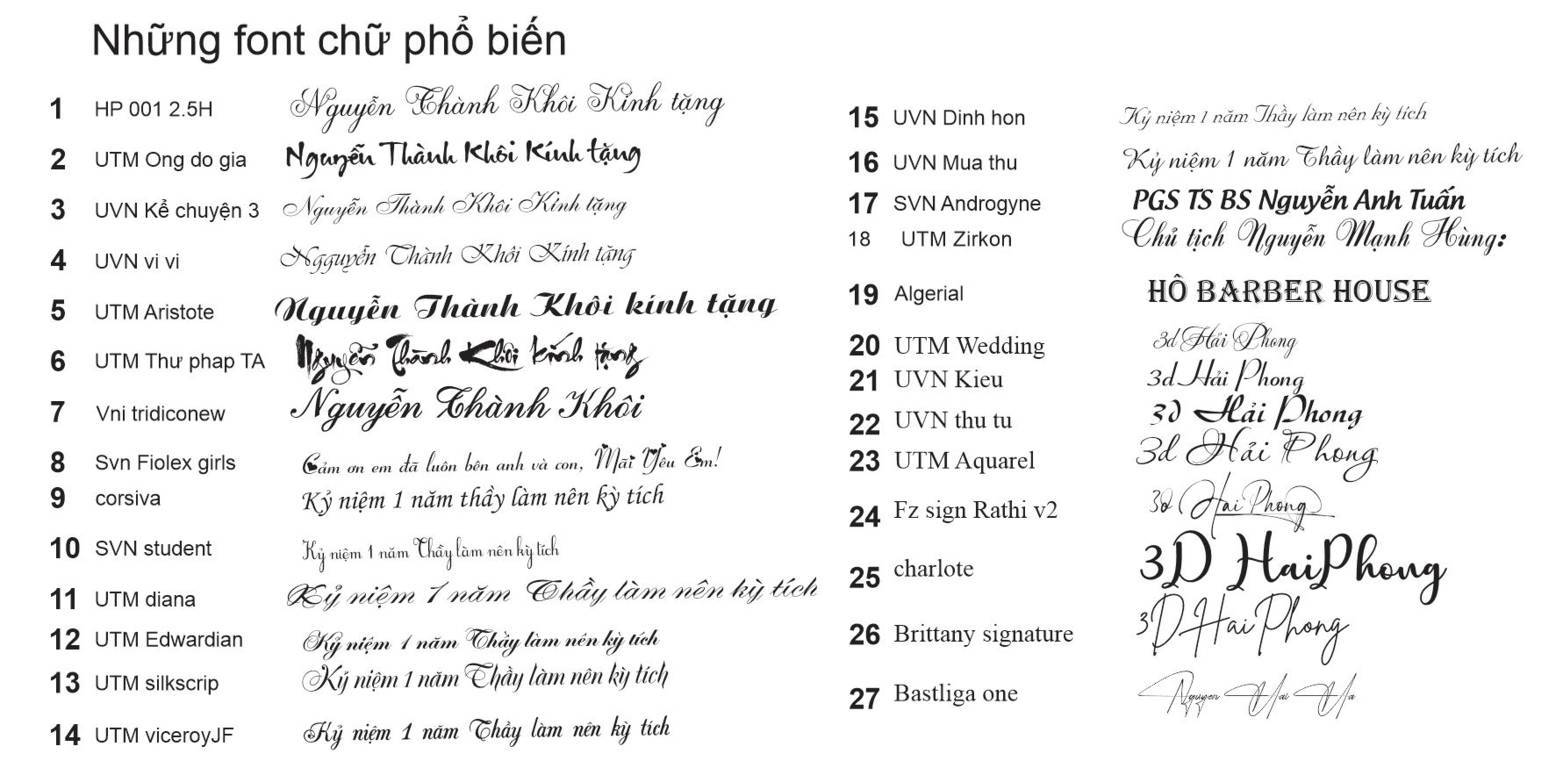 Những font chữ phổ biến
1 HP 001 2.5H Nguyễn Thành Khôi Kính tặng
2 UTM Ong do gia Nguyễn Thành Khôi Kính tặng
3 UVN Kể chuyện 3 Nguyễn Thành Khôi Kính tặng
4 UVN vi vi Ngguyễn Thành Khôi Kính tặng
5 UTM Aristote Nguyễn Thành Khôi kính tặng
6 UTM Thư phap TA Nguyễn Thành Khôi kính tặng
7 Vni tridiconew Nguyễn Thành Khôi
8 Svn Fiolex girls Cảm ơn em đã luôn bên anh và con, Mãi Yêu Em!
9 corsiva Kỷ niệm 1 năm thầy làm nên kỳ tích
10 SVN student Kỷ niệm 1 năm Thầy làm nên kỳ tích
11 UTM diana Kỷ niệm 1 năm Thầy làm nên kỳ tích
12 UTM Edwardian Kỷ niệm 1 năm Thầy làm nên kỳ tích
13 UTM silkscrip Kỷ niệm 1 năm Thầy làm nên kỳ tích
14 UTM viceroyJF Kỷ niệm 1 năm Thầy làm nên kỳ tích
15 UVN Dinh hon Kỷ niệm 1 năm Thầy làm nên kỳ tích
16 UVN Mua thu Kỷ niệm 1 năm Thầy làm nên kỳ tích
17 SVN Androgyne PGS TS BS Nguyễn Anh Tuấn
18 UTM Zirkon Chủ tịch Nguyễn Mạnh Hùng:
19 Algerial HÔ BARBER HOUSE
20 UTM Wedding 3d Hải Phong
21 UVN Kieu 3d Hải Phong
22 UVN thu tu 3d Hải Phong
23 UTM Aquarel 3d Hải Phong
24 Fz sign Rathi v2 3d Hai Phong
25 charlote 3D HaiPhong
26 Brittany signature 3D HaiPhong
27 Bastliga one Nguyen